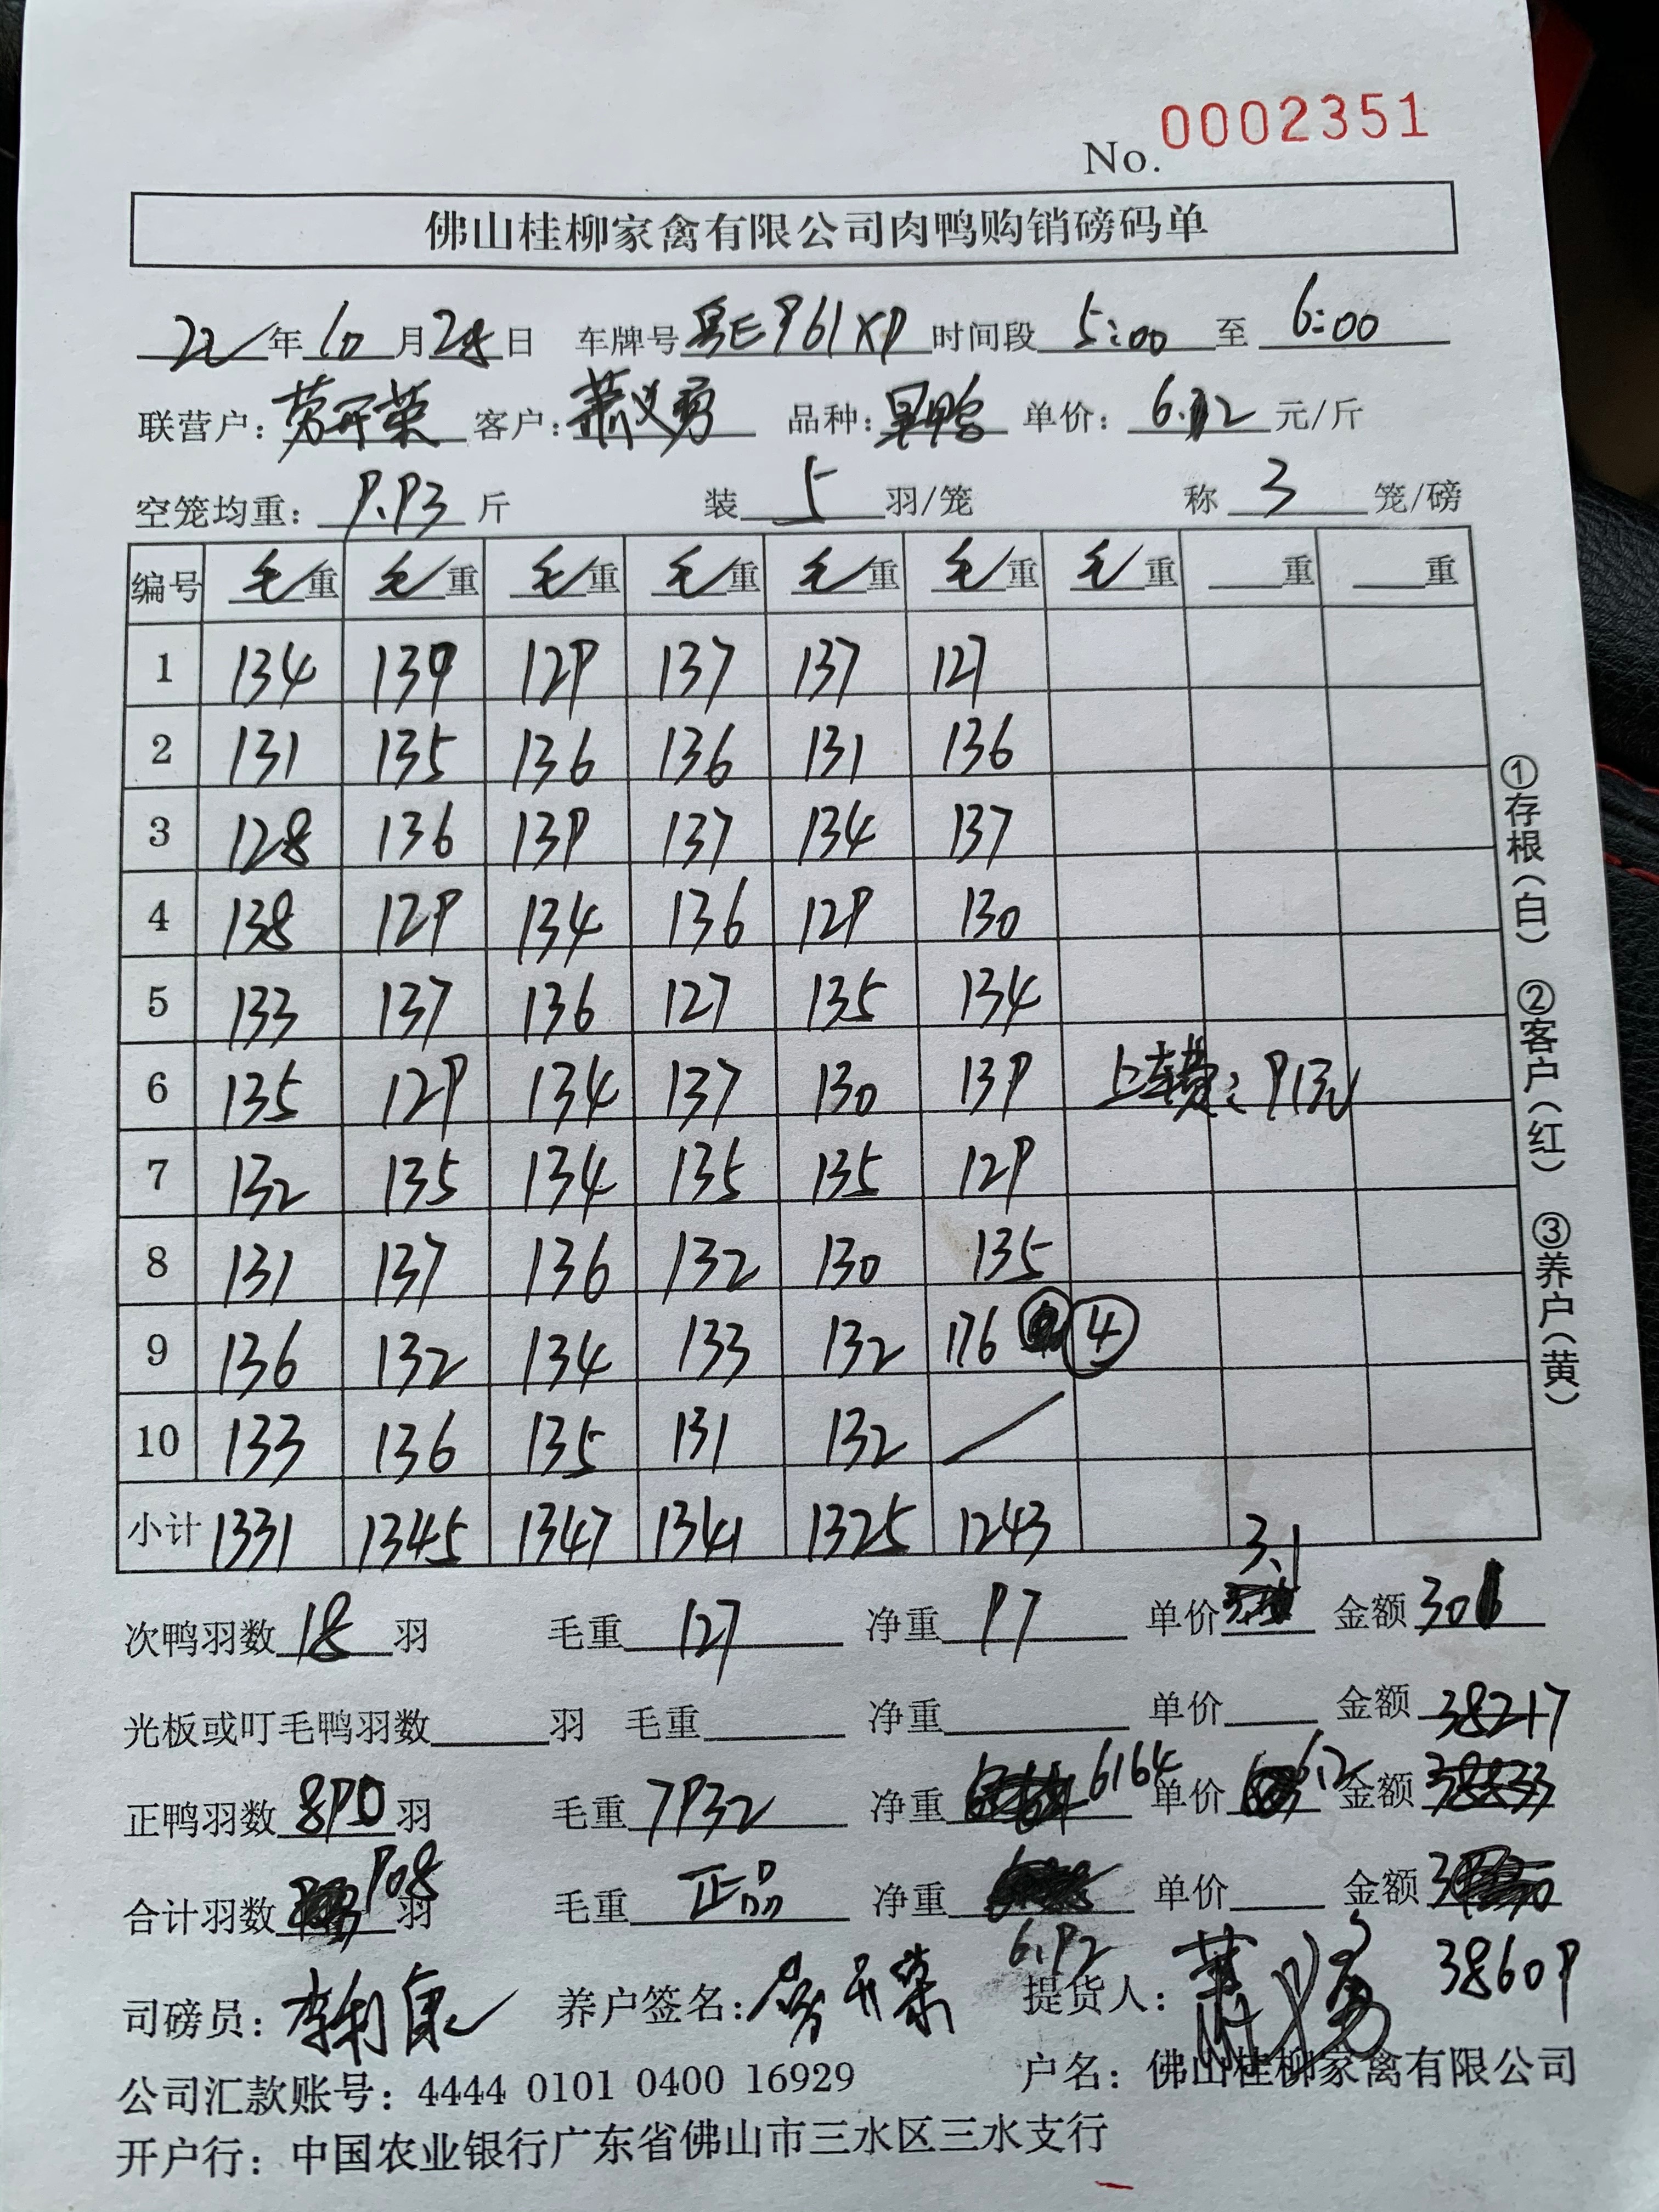 No. 0002351
佛山桂柳家禽有限公司肉鸭购销磅码单
22年10月28日 车牌号粤EP61XP时间段5:00至6:00
联营户:劳开荣 客户:萧义勇 品种:果鸭 单价:6.12元/斤
空笼均重:9.93斤 装5羽/笼 称3笼/磅
编号 毛重 毛重 毛重 毛重 毛重 毛重 毛重 重 重
1 134 139 129 137 137 127
2 131 135 136 136 131 136
3 128 136 139 137 134 137
4 138 129 134 136 129 130
5 133 137 136 127 135 134
6 135 129 134 137 130 139 上车费:913元
7 132 135 134 135 135 129
8 131 137 136 132 130 135
9 136 132 134 133 132 176 ④
10 133 136 135 131 132
小计 1331 1345 1347 1341 1325 1243
次鸭羽数18羽 毛重127 净重97 单价3.1 金额301
光板或叮毛鸭羽数 羽 毛重 净重 单价 金额38217
正鸭羽数890羽 毛重7932 净重6164 单价6.2 金额
合计羽数908羽 毛重正品 净重 单价 金额
6.92
司磅员: 养户签名:劳开荣 提货人:萧义勇 38609
公司汇款账号:4444 0101 0400 16929 户名:佛山桂柳家禽有限公司
开户行:中国农业银行广东省佛山市三水区三水支行
①存根(白) ②客户(红) ③养户(黄)